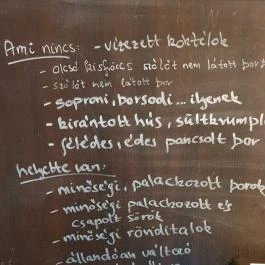 Ami nincs: - vizezett koktélok
- olcsó kisfröccs szőlőt nem látott bor
- szőlőt nem látott bor
- soproni, borsodi... ilyenek
- kirántott hús, sültkrumpl
- félédes, édes pancsolt bor
helyette van:
- minőségi, palackozott borok
- minőségi palackozott és
csapolt sörök
- minőségi röviditalok
- állandóan változó